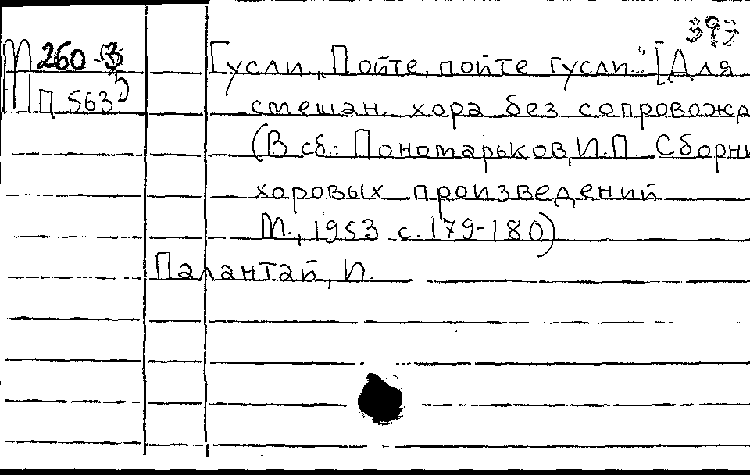 393
М 260-3
П 563
Гусли. „Пойте, пойте гусли..." [Для
смешан. хора без сопровожд
(В сб.: Пономарьков, И.П. Сборни
хоровых произведений
М., 1953 с. 179-180)
Палантай, И.